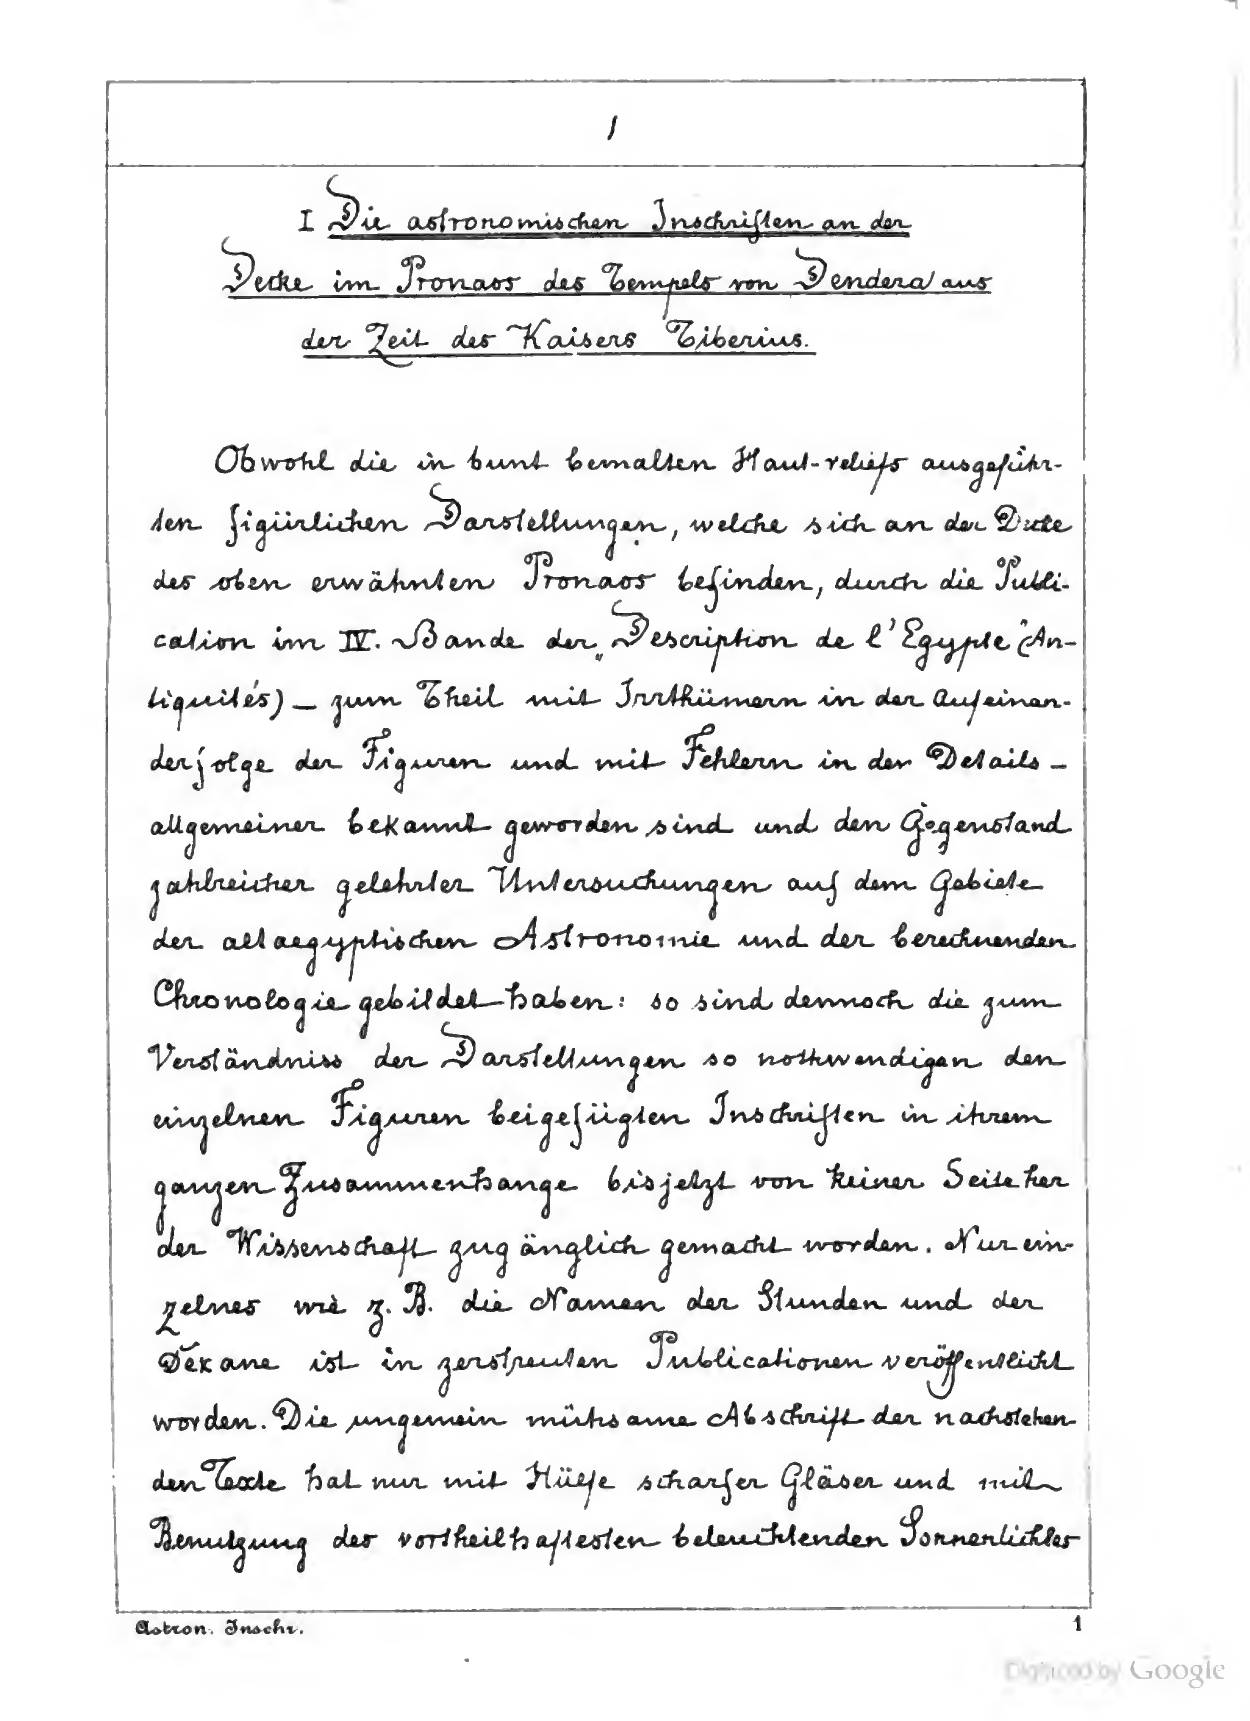 1
I Die astronomischen Inschriften an der
Decke im Pronaos des Tempels von Dendera aus
der Zeit des Kaisers Tiberius.
Obwohl die in bunt bemalten Haut-reliefs ausgeführ-
ten figürlichen Darstellungen, welche sich an der Decke
des oben erwähnten Pronaos befinden, durch die Publi-
cation im IV. Bande der „Description de l'Egypte" (An-
tiquités) — zum Theil mit Irrthümern in der Aufeinan-
derfolge der Figuren und mit Fehlern in den Details —
allgemeiner bekannt geworden sind und den Gegenstand
zahlreicher gelehrter Untersuchungen auf dem Gebiete
der altaegyptischen Astronomie und der berechnenden
Chronologie gebildet haben: so sind dennoch die zum
Verständniss der Darstellungen so nothwendigen den
einzelnen Figuren beigefügten Inschriften in ihrem
ganzen Zusammenhange bis jetzt von keiner Seite her
der Wissenschaft zugänglich gemacht worden. Nur ein-
zelnes wie z. B. die Namen der Stunden und der
Dekane ist in zerstreuten Publicationen veröffentlicht
worden. Die ungemein mühsame Abschrift der nachstehen-
den Texte hat nur mit Hülfe scharfer Gläser und mit
Benutzung des vortheilhaftesten beleuchtenden Sonnenlichtes
Astron. Inschr.
1
Digitized by Google